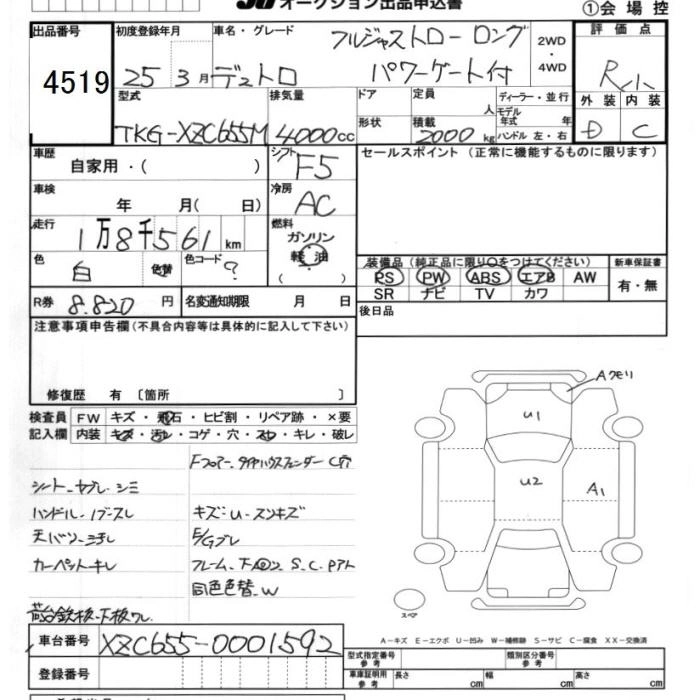 オークション出品申込書
①会場控
出品番号
4519
初度登録年月
25 3月
車名・グレード
デュトロ
フルジャストロー ロング
パワーゲート付
2WD・
4WD
評価点
外装 内装
D C
型式
TKG-XZC655M
排気量
4000cc
ドア
形状
定員
人
積載
2000kg
ディーラー・並行
モデル年式 年
ハンドル 左・右
車歴
自家用・( )
シフト
F5
セールスポイント(正常に機能するものに限ります)
車検
年 月( 日)
冷房
AC
走行
1万8千561km
燃料
ガソリン
軽油
( )
色
白
色替
色コード
?
装備品(純正品に限り○をつけてください)
PS PW ABS エアB AW
SR ナビ TV カワ
新車保証書
有・無
R券
8.820円
名変通知期限 月 日
後日品
注意事項申告欄(不具合内容等は具体的に記入して下さい)
修復歴 有〔箇所 〕
検査員 FW キズ・飛石・ヒビ割・リペア跡・×要
記入欄 内装 キズ・汚レ・コゲ・穴・スレ・キレ・破レ
Fフロアー、タイヤハウスフェンダー C穴
シート-ヤブレ・シミ
ハンドル
キズ:U-スソキズ
カーペットキレ
同色色替、W
Aクモリ
U1
U2
A1
スペア
A-キズ E-エクボ U-凹み W-補修跡 S-サビ C-腐食 XX-交換済
車台番号
XZC655-0001592
型式指定番号
参考
類別区分番号
参考
登録番号
車庫証明用
参考
長さ cm
幅 cm
高さ cm